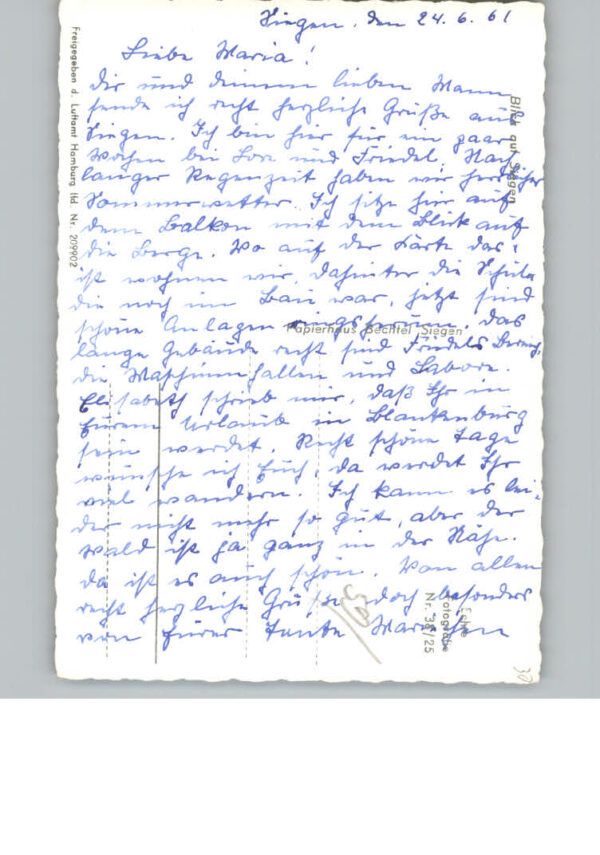 Siegen, den 24.6.61
Liebe Maria!
Dir und deinem lieben Mann
sende ich recht herzliche Grüße aus
Siegen. Ich bin hier für ein paar
Wochen bei Lore und Friedel. Nach
langer Regenzeit haben wir herrliches
Sommerwetter. Ich sitze hier auf
dem Balkon mit dem Blick auf
die Berge. Wo auf der Karte das
ist wohnen wir, dahinter die Schule
die noch im Bau war, jetzt sind
schöne Anlagen ringsherum, das
lange Gebäude recht sind Friedels
die Maschinenhallen und Labore.
Elisabeth schrieb mir, daß Ihr in
Eurem Urlaub in Blankenburg
sein werdet. Recht schöne Tage
wünsche ich Euch, da werdet Ihr
viel wandern. Ich kann es lei-
der nicht mehr so gut, aber der
Wald ist ja ganz in der Nähe.
da ist es auch schön. Von allen
recht herzliche Grüße doch besonders
von Eurer Tante Mariechen
Freigegeben d. Luftamt Hamburg lfd. Nr. 209902
Blick auf Siegen
Papierhaus Bechtel Siegen
Echte
Fotografie
Nr. 38/25